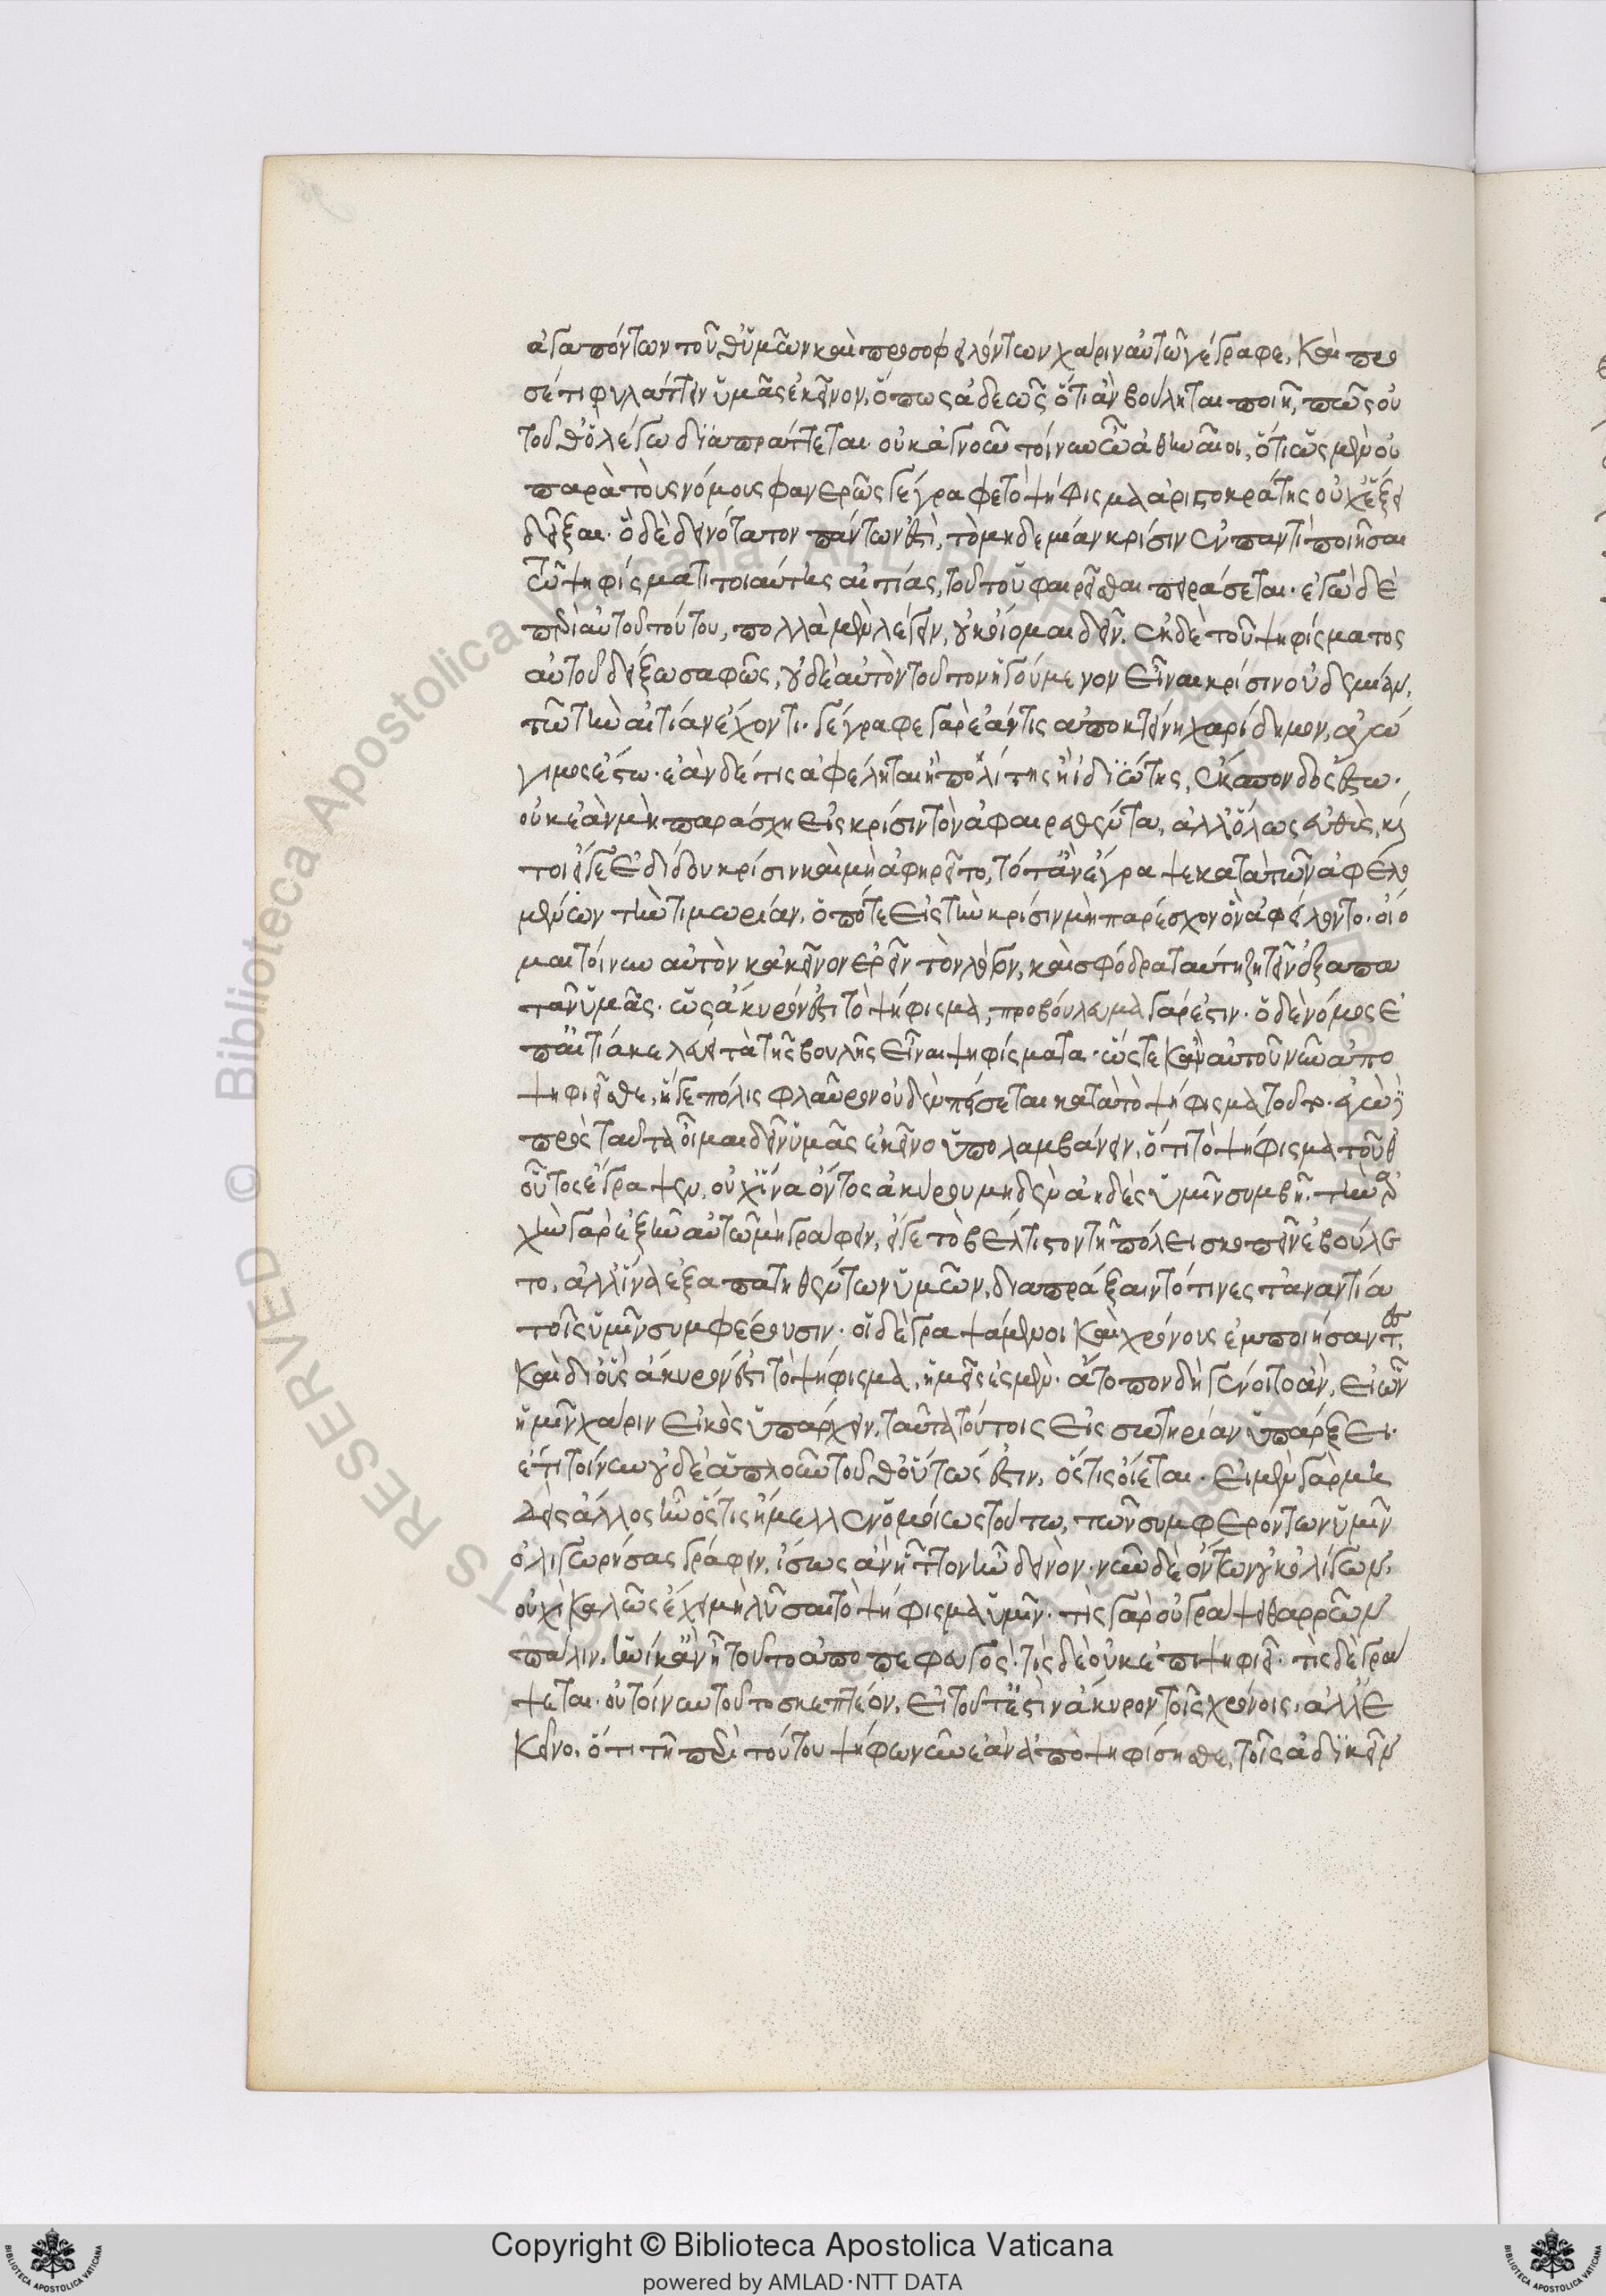 ἀγαπόντων τοῦθ' ὑμῶν καὶ προσοφειλόντων χάριν αὐτῶ γέγραφε, καὶ προ
σέτι φυλάττειν ὑμᾶς ἐκεῖνον, ὅπως ἀδεῶς ὅτι ἂν βούληται ποιῆ, πῶς οὐ
τοῦθ' ὃ λέγω διαπράττεται· οὐκ ἀγνοῶ τοίνυν ὦ ἀθηναῖοι, ὅτι ὡς μὲν οὐ
παρὰ τοὺς νόμους φανερῶς γέγραφε τὸ ψήφισμα ἀριστοκράτης οὐχ ἕξει
δεῖξαι· ὃ δὲ δεινότατον πάντων ἐστὶ, τὸ μηδεμίαν κρίσιν ἐν παντὶ ποιῆσαι
τῶ ψηφίσματι τοιαύτης αἰτίας, τοῦτο ὑφαιρεῖσθαι πειράσεται· ἐγὼ δὲ
περὶ αὐτοῦ τούτου, πολλὰ μὲν λέγειν, οὐκ οἴομαι δεῖν. ἐκ δὲ τοῦ ψηφίσματος
αὐτοῦ δείξω σαφῶς, οὐδὲ αὐτὸν τοῦτον ἡγούμενον εἶναι κρίσιν οὐδεμίαν,
τῶ τὴν αἰτίαν ἔχοντι· γέγραφε γὰρ ἐάν τις ἀποκτείνη χαρίδημον, ἀγώ
γιμος ἔστω· ἐὰν δέ τις ἀφέληται ἢ πολίτης ἢ ἰδιώτης, ἔκσπονδος ἔστω·
οὐκ ἐὰν μὴ παράσχη εἰς κρίσιν τὸν ἀφαιρεθέντα, ἀλλ' ὅλως εὐθὺς, καί
τοι εἴ γε ἐδίδου κρίσιν καὶ μὴ ἀφηρεῖτο, τότ' ἂν ἔγραψε κατὰ τῶν ἀφελο
μένων τὴν τιμωρίαν, ὁπότε εἰς τὴν κρίσιν μὴ παρέσχον ὃν ἀφείλοντο· οἴο
μαι τοίνυν αὐτὸν κἀκεῖνον ἐρεῖν τὸν λόγον, καὶ σφόδρα ταύτη ζητεῖν ἐξαπα
τᾶν ὑμᾶς· ὡς ἄκυρόν ἐστι τὸ ψήφισμα, προβούλευμα γάρ ἐστιν· ὁ δὲ νόμος ἐ
παίτια κελεύει τὰ τῆς βουλῆς εἶναι ψηφίσματα· ὥστε κἂν αὐτοῦ νῦν ἀπο
ψηφιεῖσθε, ἥ γε πόλις φλαῦρον οὐδὲν πείσεται κατὰ τὸ ψήφισμα τοῦτο· ἐγὼ δὲ
πρὸς ταῦτα οἶμαι δεῖν ὑμᾶς ἐκεῖνο ὑπολαμβάνειν, ὅτι τὸ ψήφισμα τοῦθ'
οὗτος ἔγραψεν, οὐχ ἵνα ὄντος ἀκύρου μηδὲν ἀηδὲς ὑμῖν συμβῆ. τὴν ἀρ
χὴν γὰρ ἐξῆν αὐτῶ μὴ γράφειν, εἴ γε τὸ βέλτιστον τῆ πόλει σκοπεῖν ἐβούλε
το, ἀλλ' ἵνα ἐξαπατηθέντων ὑμῶν, διαπράξαιντό τινες τἀναντία
τοῖς ὑμῖν συμφέρουσιν· οἱ δὲ γραψάμενοι καὶ χρόνους ἐμποιήσαντες,
καὶ δι' οὓς ἄκυρόν ἐστι τὸ ψήφισμα, ἡμεῖς ἐσμὲν· ἄτοπον δὴ γένοιτο ἂν, εἰ ὧν
ἡμῖν χάριν εἰκὸς ὑπάρχειν, ταῦτα τούτοις εἰς σωτηρίαν ὑπάρξει·
ἔτι τοίνυν οὐδὲ ἁπλοῦν τοῦθ' οὕτως ἐστιν, ὥς τις οἴεται· εἰ μὲν γὰρ μη
δεὶς ἄλλος ἦν ὅστις ἤμελλεν ὁμοίως τούτω, τῶν συμφερόντων ὑμῖν
ὀλιγωρήσας γράφειν, ἴσως ἂν ἧττον ἦν δεινὸν· νῦν δὲ ὄντων οὐκ ὀλίγων,
οὐχὶ καλῶς ἔχει μὴ λῦσαι τὸ ψήφισμα ὑμῖν· τίς γὰρ οὐ γράψει θαρρῶν
πάλιν, ἡνίκ' ἂν ἦ τοῦτο ἀποπεφευγὸς· τίς δὲ οὐκ ἐπιψηφιεῖ· τίς δὲ γρά
ψεται· οὐ τοίνυν τοῦτο σκεπτέον, εἰ τοῦτ' ἐστὶν ἄκυρον τοῖς χρόνοις, ἀλλ' ἐ
κεῖνο, ὅτι τῆ περὶ τούτου ψήφω νῦν ἐὰν ἀποψηφίσησθε, τοῖς ἀδικεῖν